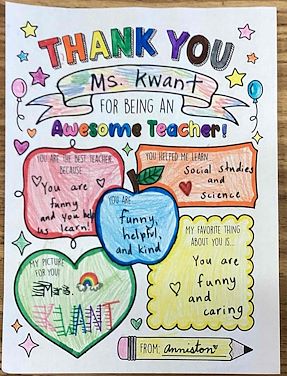 THANK YOU
Ms. Kwant
FOR BEING AN
Awesome Teacher!
YOU ARE THE BEST TEACHER
BECAUSE
You are
funny
and you help
us learn!
YOU HELPED ME LEARN
Social studies
and
science
YOU ARE
funny,
helpful,
and kind
MY FAVORITE THING
ABOUT YOU IS...
You are
funny
and
caring
MY PICTURE
FOR YOU!
Mrs.
KWANT
FROM: anniston